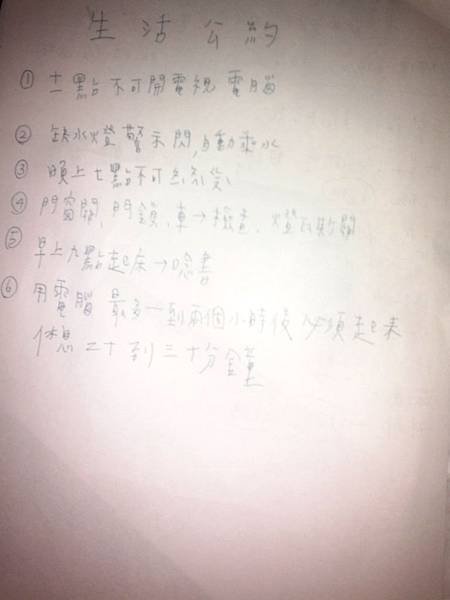 生活公約
① 十一點不可開電視 電腦
② 缺水燈警示閃,自動乘水
③ 晚上七點不可
④ 門窗關,門鎖,車→檢查,燈 關
⑤ 早上九點起床→唸書
⑥ 用電腦 最多一到兩個小時後 必須起來
休息二十到三十分鐘